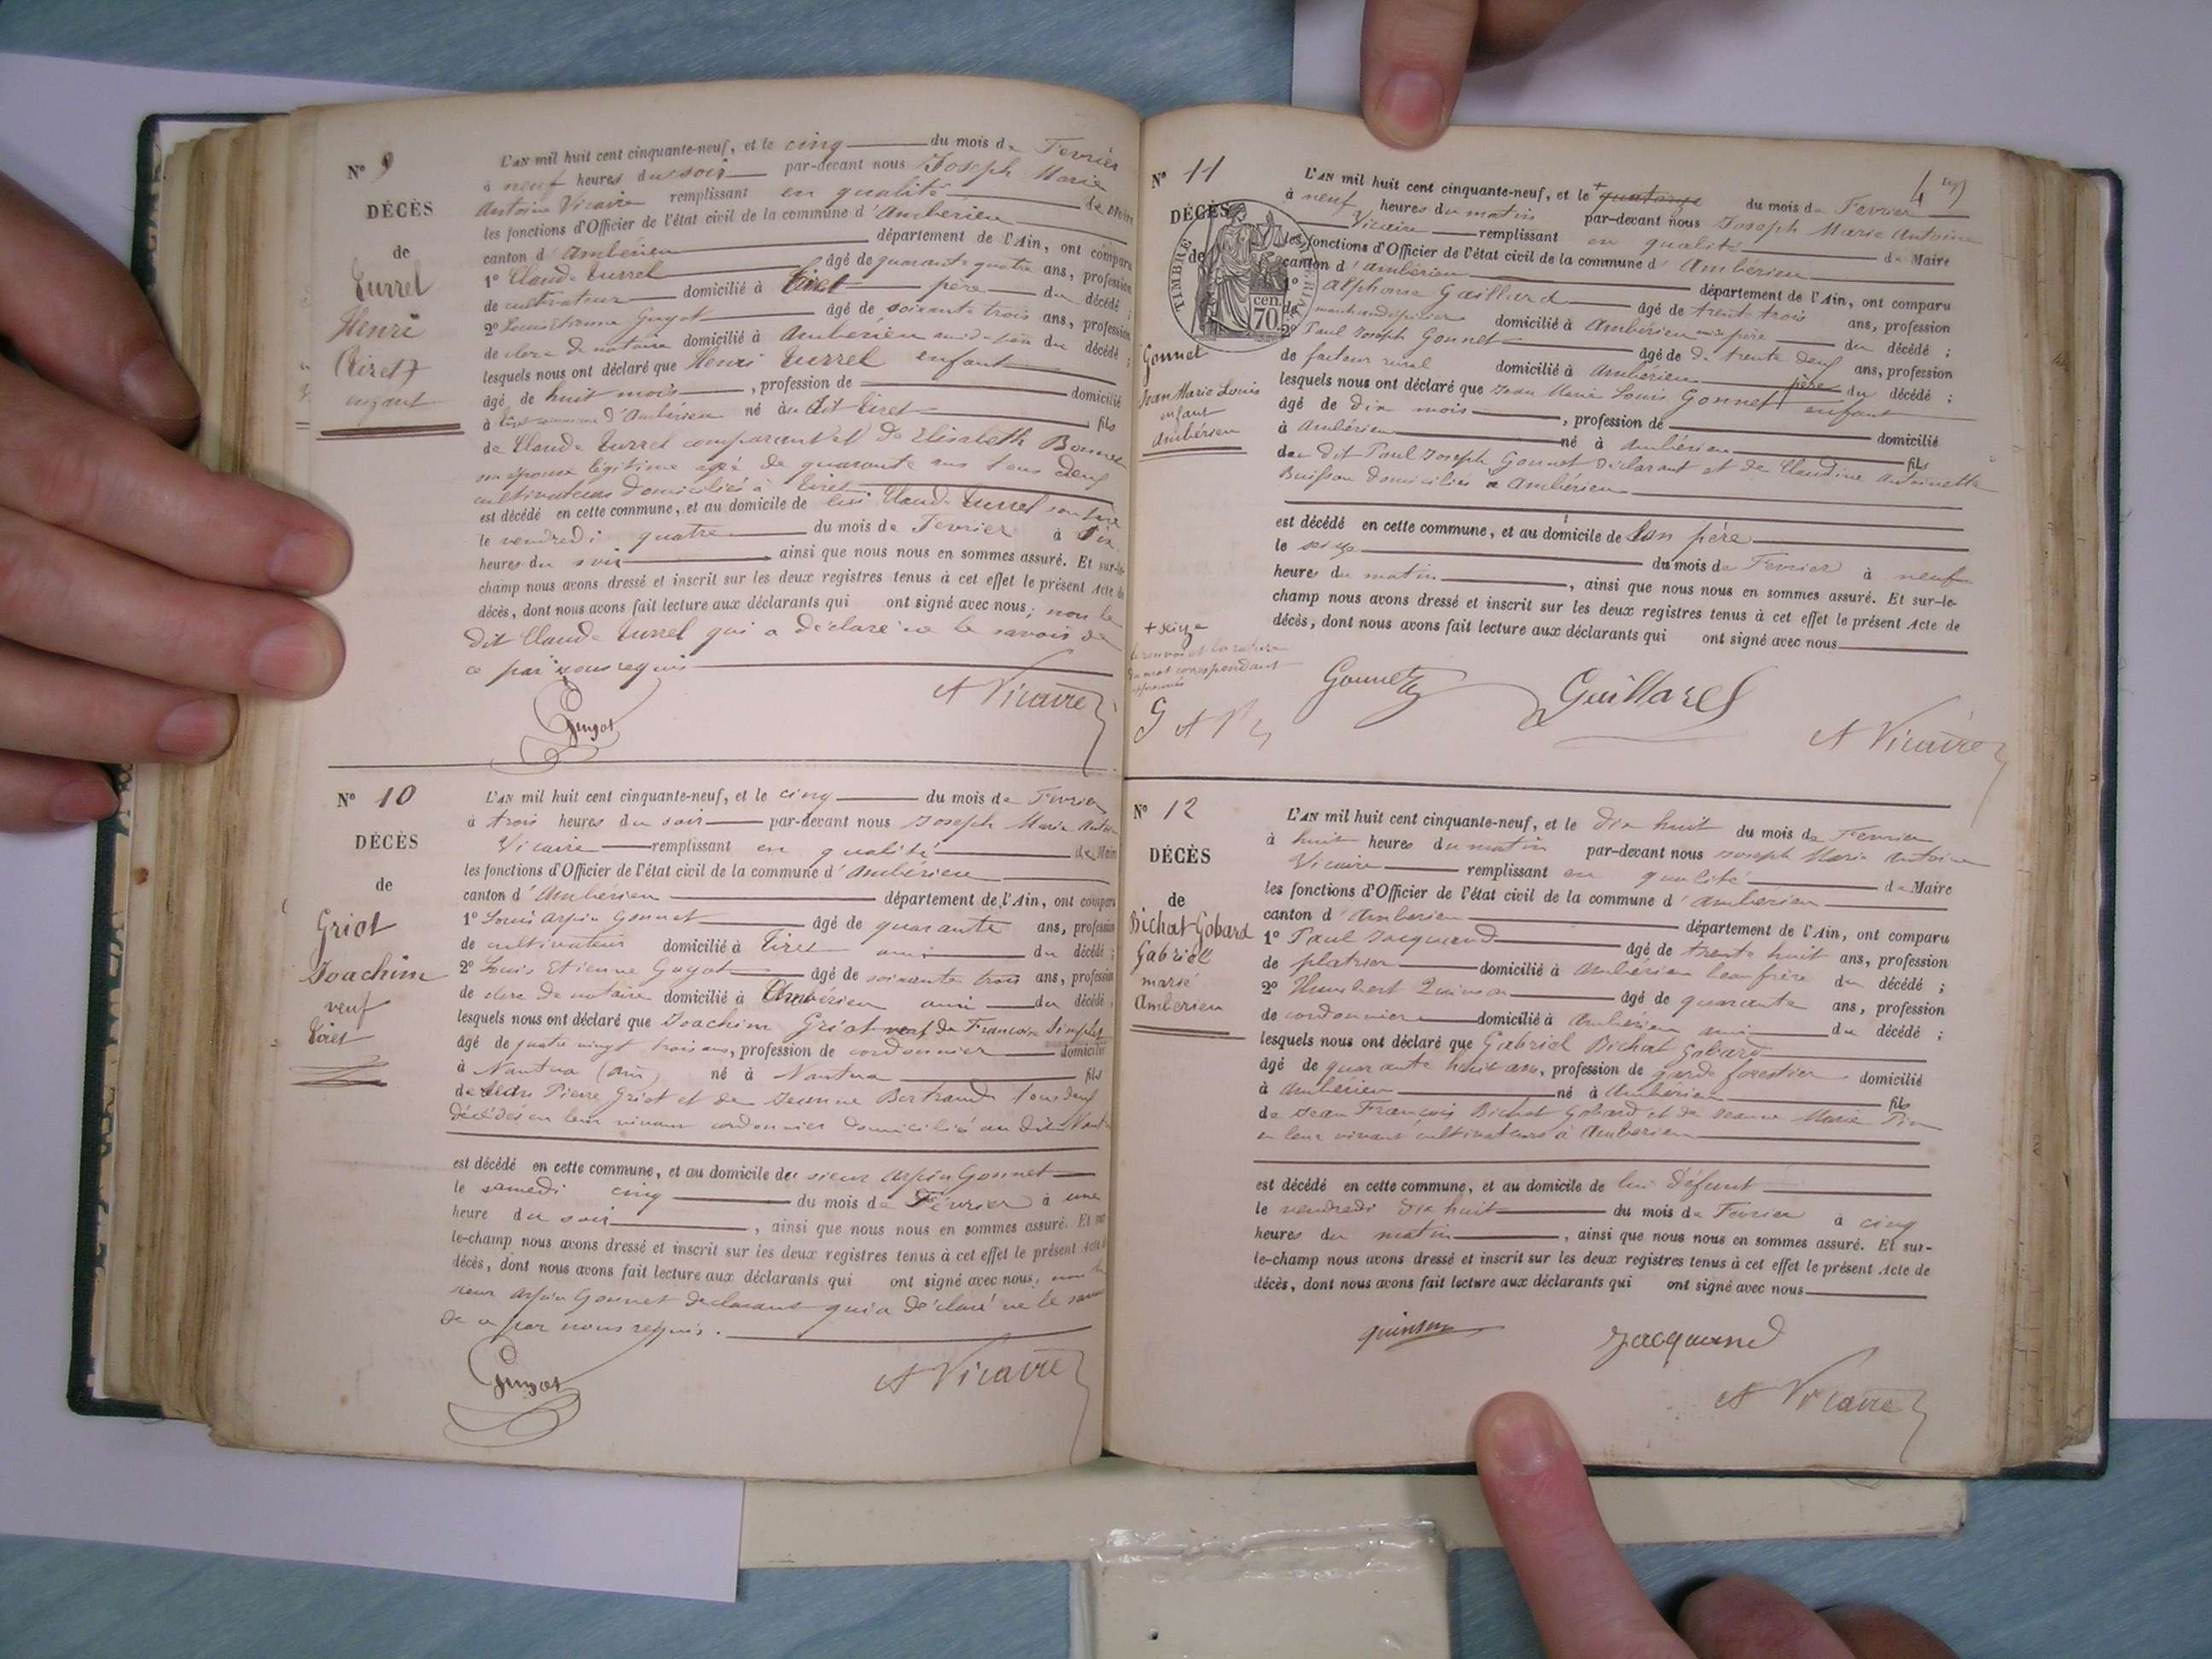 N° 9
DÉCÈS
de
Turrel
Henri
Tiret
enfant
L'AN mil huit cent cinquante-neuf, et le cinq du mois de Fevrier
à neuf heures du soir par-devant nous Joseph Marie
Antoine Vicaire remplissant en qualité de Maire
les fonctions d'Officier de l'état civil de la commune d'Ambérieu
canton d'Ambérieu département de l'Ain, ont comparu
1° Claude Turrel âgé de quarante quatre ans, profession
de cultivateur domicilié à Tiret père du décédé ;
2° Louis Etienne Guyot âgé de soixante trois ans, profession
de clerc de notaire domicilié à Ambérieu du décédé ;
lesquels nous ont déclaré que Henri Turrel enfant
âgé de huit mois, profession de domicilié
à Tiret commune d'Ambérieu né au dit Tiret fils
de Claude Turrel comparant et de Elisabeth Bonnet
son épouse légitime agée de quarante ans tous deux
cultivateurs domiciliés à Tiret
est décédé en cette commune, et au domicile de lui Claude Turrel son père
le vendredi quatre du mois de Fevrier à dix
heures du soir ainsi que nous nous en sommes assuré. Et sur-le-
champ nous avons dressé et inscrit sur les deux registres tenus à cet effet le présent Acte de
décès, dont nous avons fait lecture aux déclarants qui ont signé avec nous ; non le
dit Claude Turrel qui a déclaré ne le savoir de
ce par nous requis
Guyot A Vicaire
N° 10
DÉCÈS
de
Griot
Joachim
veuf
Tiret
L'AN mil huit cent cinquante-neuf, et le cinq du mois de Fevrier
à trois heures du soir par-devant nous Joseph Marie Antoine
Vicaire remplissant en qualité de Maire
les fonctions d'Officier de l'état civil de la commune d'Ambérieu
canton d'Ambérieu département de l'Ain, ont comparu
1° Louis Arpin Gonnet âgé de quarante ans, profession
de cultivateur domicilié à Tiret ami du décédé ;
2° Louis Etienne Guyot âgé de soixante trois ans, profession
de clerc de notaire domicilié à Ambérieu ami du décédé ;
lesquels nous ont déclaré que Joachim Griot veuf de Françoise
âgé de quatre vingt trois ans, profession de cordonnier domicilié
à Nantua (ain) né à Nantua fils
de Jean Pierre Griot et de Jeanne Bertrand tous deux
décédés en leur vivant cordonnier domicilié au dit
est décédé en cette commune, et au domicile du sieur Arpin Gonnet
le samedi cinq du mois de Février à une
heure du soir, ainsi que nous nous en sommes assuré. Et sur-
le-champ nous avons dressé et inscrit sur les deux registres tenus à cet effet le présent Acte de
décès, dont nous avons fait lecture aux déclarants qui ont signé avec nous, non le
sieur Arpin Gonnet declarant qui a déclaré ne le savoir
de ce par nous requis.
Guyot A Vicaire
N° 11
DÉCÈS
de
TIMBRE IMPÉRIAL
70 cen
Gonnet
Jean Marie Louis
enfant
Ambérieu
L'AN mil huit cent cinquante-neuf, et le + quatorze du mois de Fevrier
à neuf heures du matin par-devant nous Joseph Marie Antoine
Vicaire remplissant en qualité de Maire
les fonctions d'Officier de l'état civil de la commune d'Ambérieu
canton d'Ambérieu département de l'Ain, ont comparu
1° Alphonse Gaillard âgé de trente trois ans, profession
de marchand épicier domicilié à Ambérieu du décédé ;
2° Paul Joseph Gonnet âgé de de trente deux ans, profession
de facteur rural domicilié à Ambérieu père du décédé ;
lesquels nous ont déclaré que Jean Marie Louis Gonnet enfant
âgé de dix mois, profession de domicilié
à Ambérieu né à Ambérieu fils
du dit Paul Joseph Gonnet déclarant et de Claudine Antoinette
Buisson domiciliés à Ambérieu
est décédé en cette commune, et au domicile de son père
le seize du mois de Fevrier à neuf
heures du matin, ainsi que nous nous en sommes assuré. Et sur-le-
champ nous avons dressé et inscrit sur les deux registres tenus à cet effet le présent Acte de
décès, dont nous avons fait lecture aux déclarants qui ont signé avec nous
+ seize
le renvoi et la rature
du mot correspondant
approuvés
Gonnet Gaillard
A Vicaire
N° 12
DÉCÈS
de
Bichat-Gobard
Gabriel
marié
Amberieu
L'AN mil huit cent cinquante-neuf, et le dix huit du mois de Fevrier
à huit heures du matin par-devant nous Joseph Marie Antoine
Vicaire remplissant en qualité de Maire
les fonctions d'Officier de l'état civil de la commune d'Ambérieu
canton d'Ambérieu département de l'Ain, ont comparu
1° Paul Jacquand âgé de trente huit ans, profession
de platrier domicilié à Ambérieu beau frère du décédé ;
2° Humbert Quinson âgé de quarante ans, profession
de cordonnier domicilié à Ambérieu ami du décédé ;
lesquels nous ont déclaré que Gabriel Bichat Gobard
âgé de quarante huit ans, profession de garde forestier domicilié
à Ambérieu né à Ambérieu fils
de Jean François Bichat Gobard et de Jeanne Marie
en leur vivant cultivateurs à Ambérieu
est décédé en cette commune, et au domicile de lui défunt
le vendredi dix huit du mois de Fevrier à cinq
heures du matin, ainsi que nous nous en sommes assuré. Et sur-
le-champ nous avons dressé et inscrit sur les deux registres tenus à cet effet le présent Acte de
décès, dont nous avons fait lecture aux déclarants qui ont signé avec nous
quinson Jacquand
A Vicaire